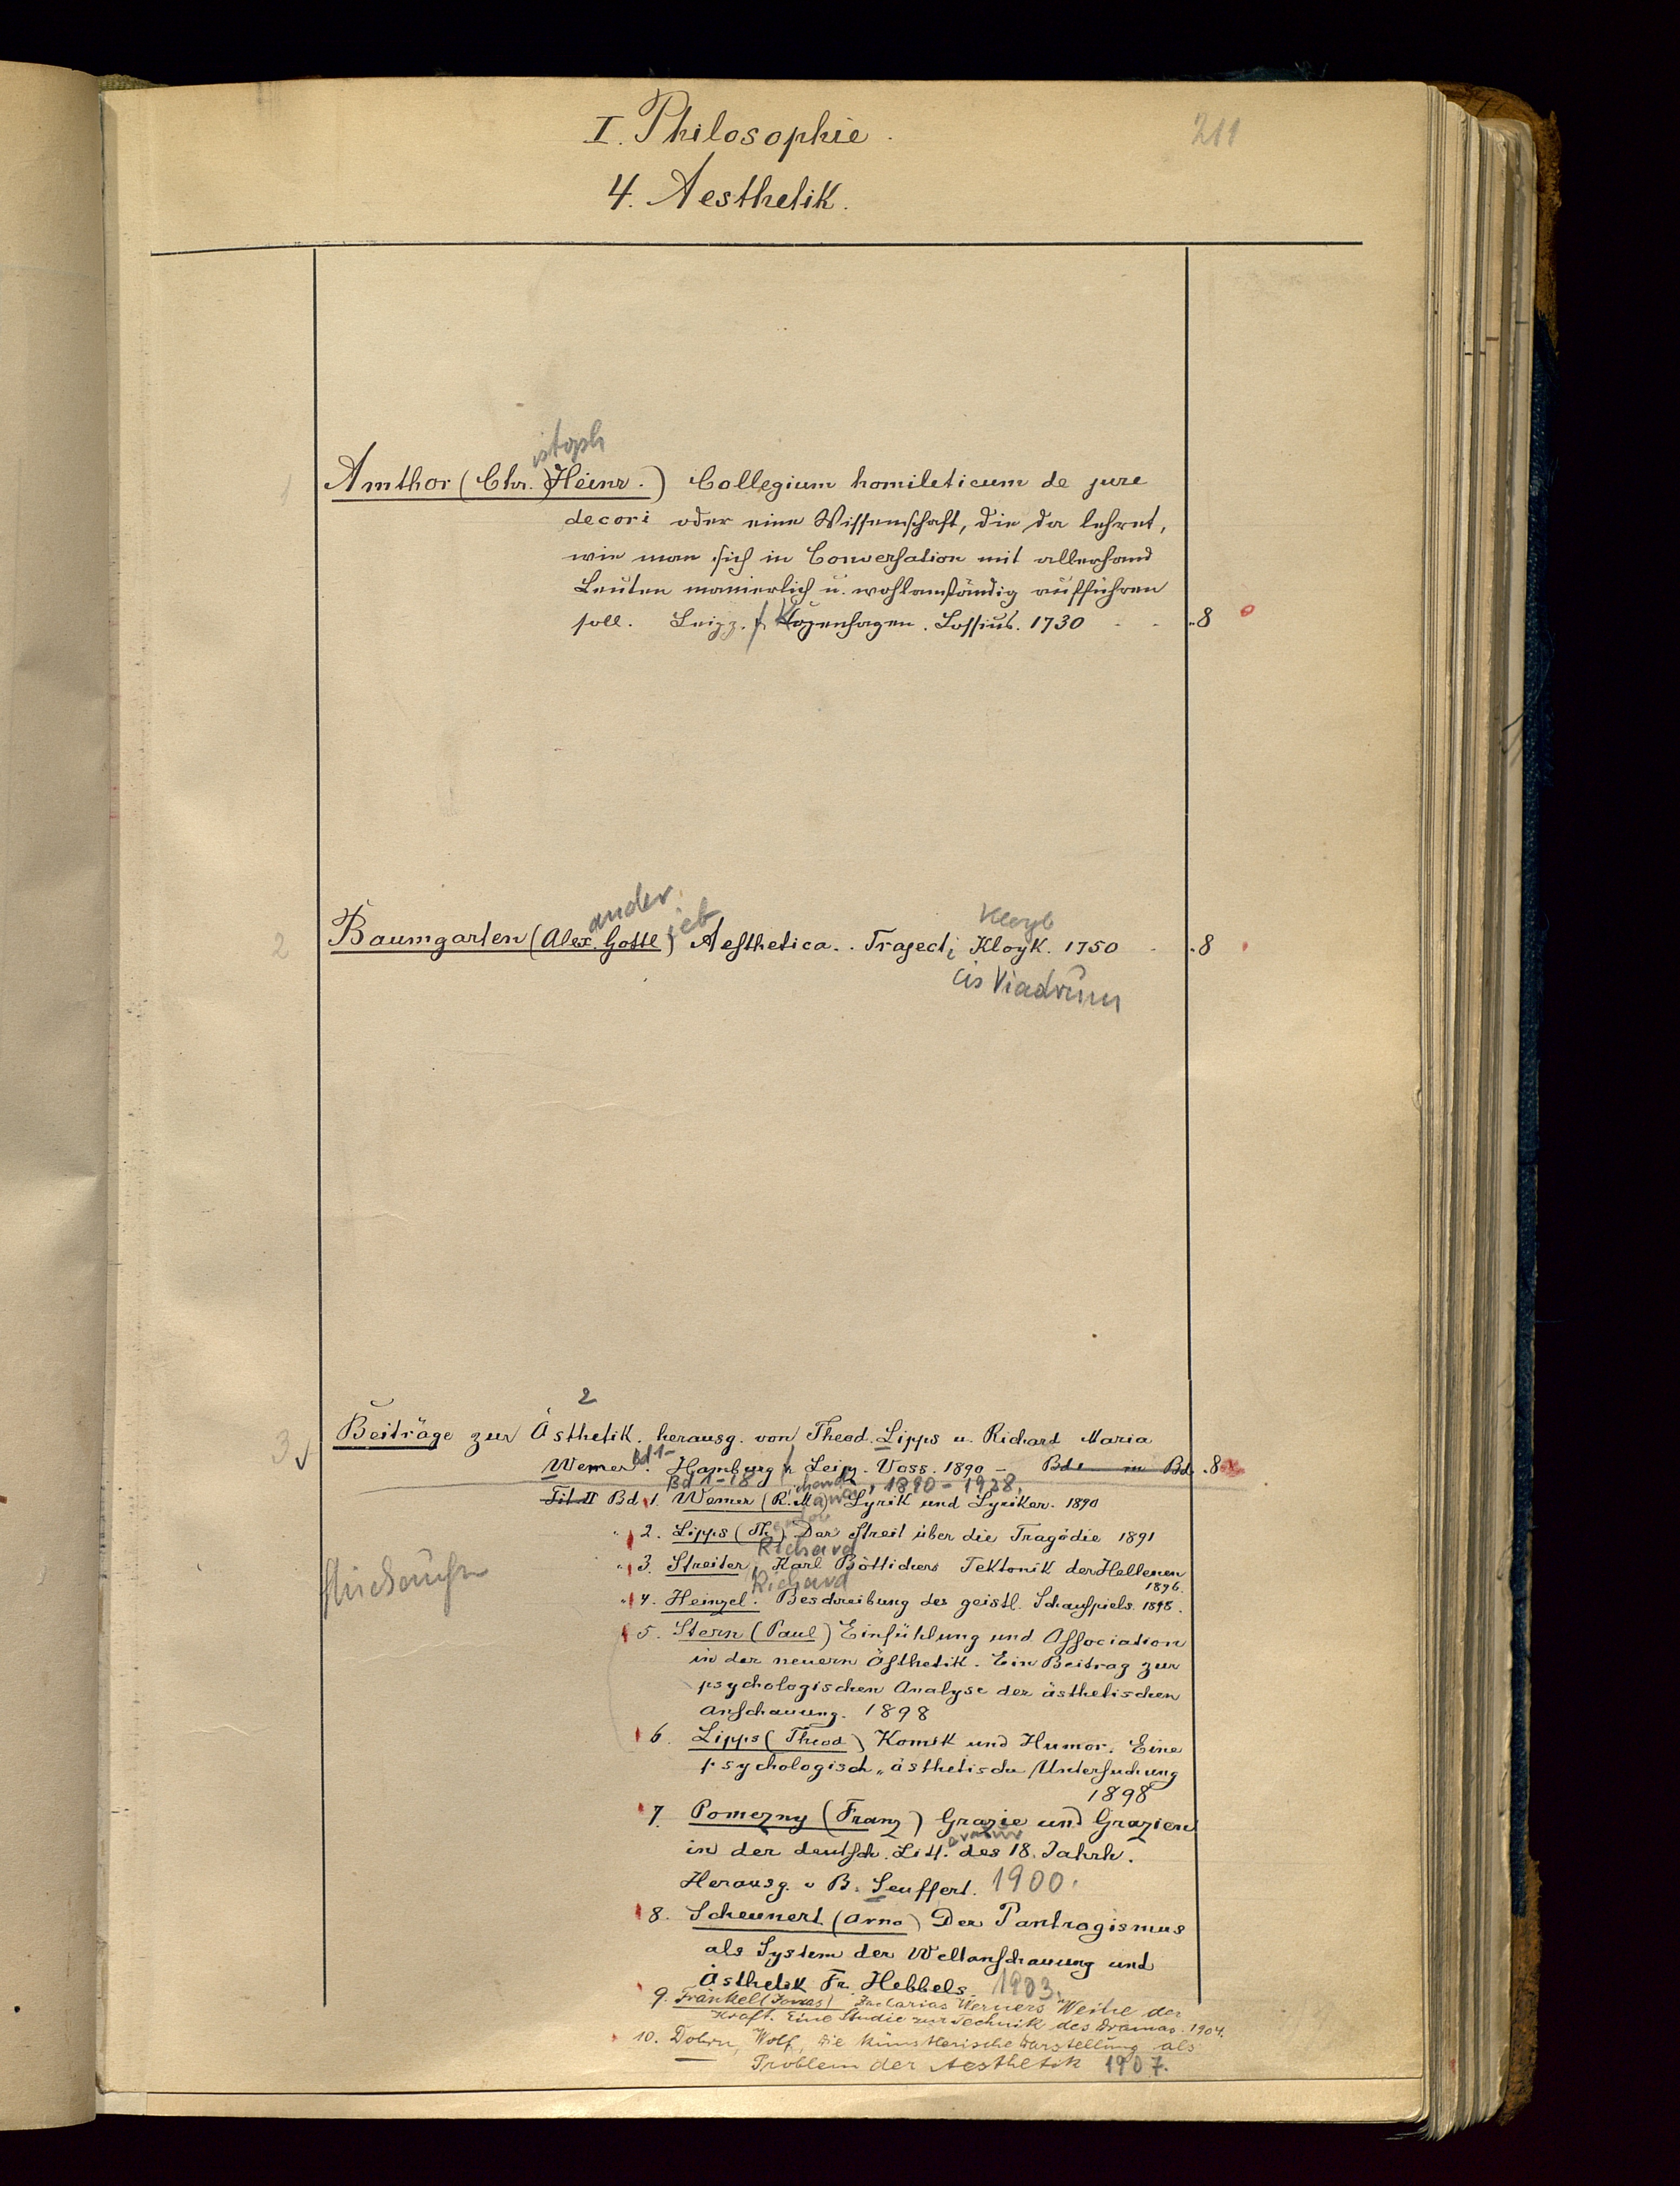 I. Philosophie.
211
4. Aesthetik.
istoph
1 Amthor (Chr. Heinr.) Collegium homileticum de jure
decori oder eine Wissenschaft, die da lehret,
wie man sich in Conversation mit allerhand
Leuten manierlich u. wohlanständig aufführen
soll. Leipz. Kopenhagen. Lossius. 1730 - - 8
ander ieb Kleyb
2 Baumgarten (Alex. Gottl) Aesthetica. Trajecti Kloyk. 1750 - 8
cis Viadrum
2
3 Beiträge zur Ästhetik. herausg. von Theod. Lipps u. Richard Maria
Werner. Bd 1- Hamburg Leipz. Voss. 1890 - Bd 1 in Bd. 8
Bd 1-18, 1890-1928.
ichard aria
Tit II Bd 1. Werner (R. M.) Lyrik und Lyriker. 1890
eodor
" 2. Lipps (Th.) Der Streit über die Tragödie 1891
Richard
" 3. Streiter, Karl Böttichers Tektonik der Hellenen
1896.
Richard
" 4. Heinzel. Beschreibung des geistl. Schauspiels. 1898.
5. Stern (Paul) Einfühlung und Association
in der neuern Ästhetik. Ein Beitrag zur
psychologischen Analyse der ästhetischen
Anschauung. 1898
6. Lipps (Theod) Komik und Humor. Eine
psychologisch-ästhetische Untersuchung
1898
7. Pomezny (Franz) Grazie und Grazien
eratur
in der deutsch. Litt. des 18. Jahrh.
Herausg. v B. Seuffert. 1900.
8. Scheunert (Arno) Der Pantragismus
als System der Weltanschauung und
Ästhetik Fr. Hebbels 1903.
9. Fränkel (Jonas) Zacharias Werners Weihe der
Kraft. Eine Studie zur Technik des Dramas. 1904.
10. Dohrn, Wolf, Die künstlerische Darstellung als
Problem der Aesthetik 1907.